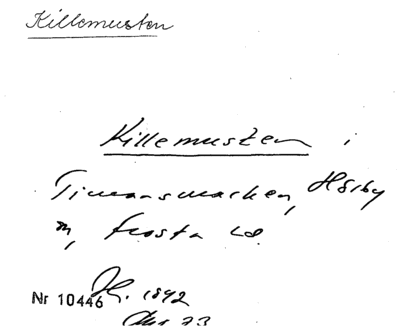 Killemusten
Killemusten i
Timansmarken, Hörby
sn, Frosta hd.
Nr 10446 H. 1892